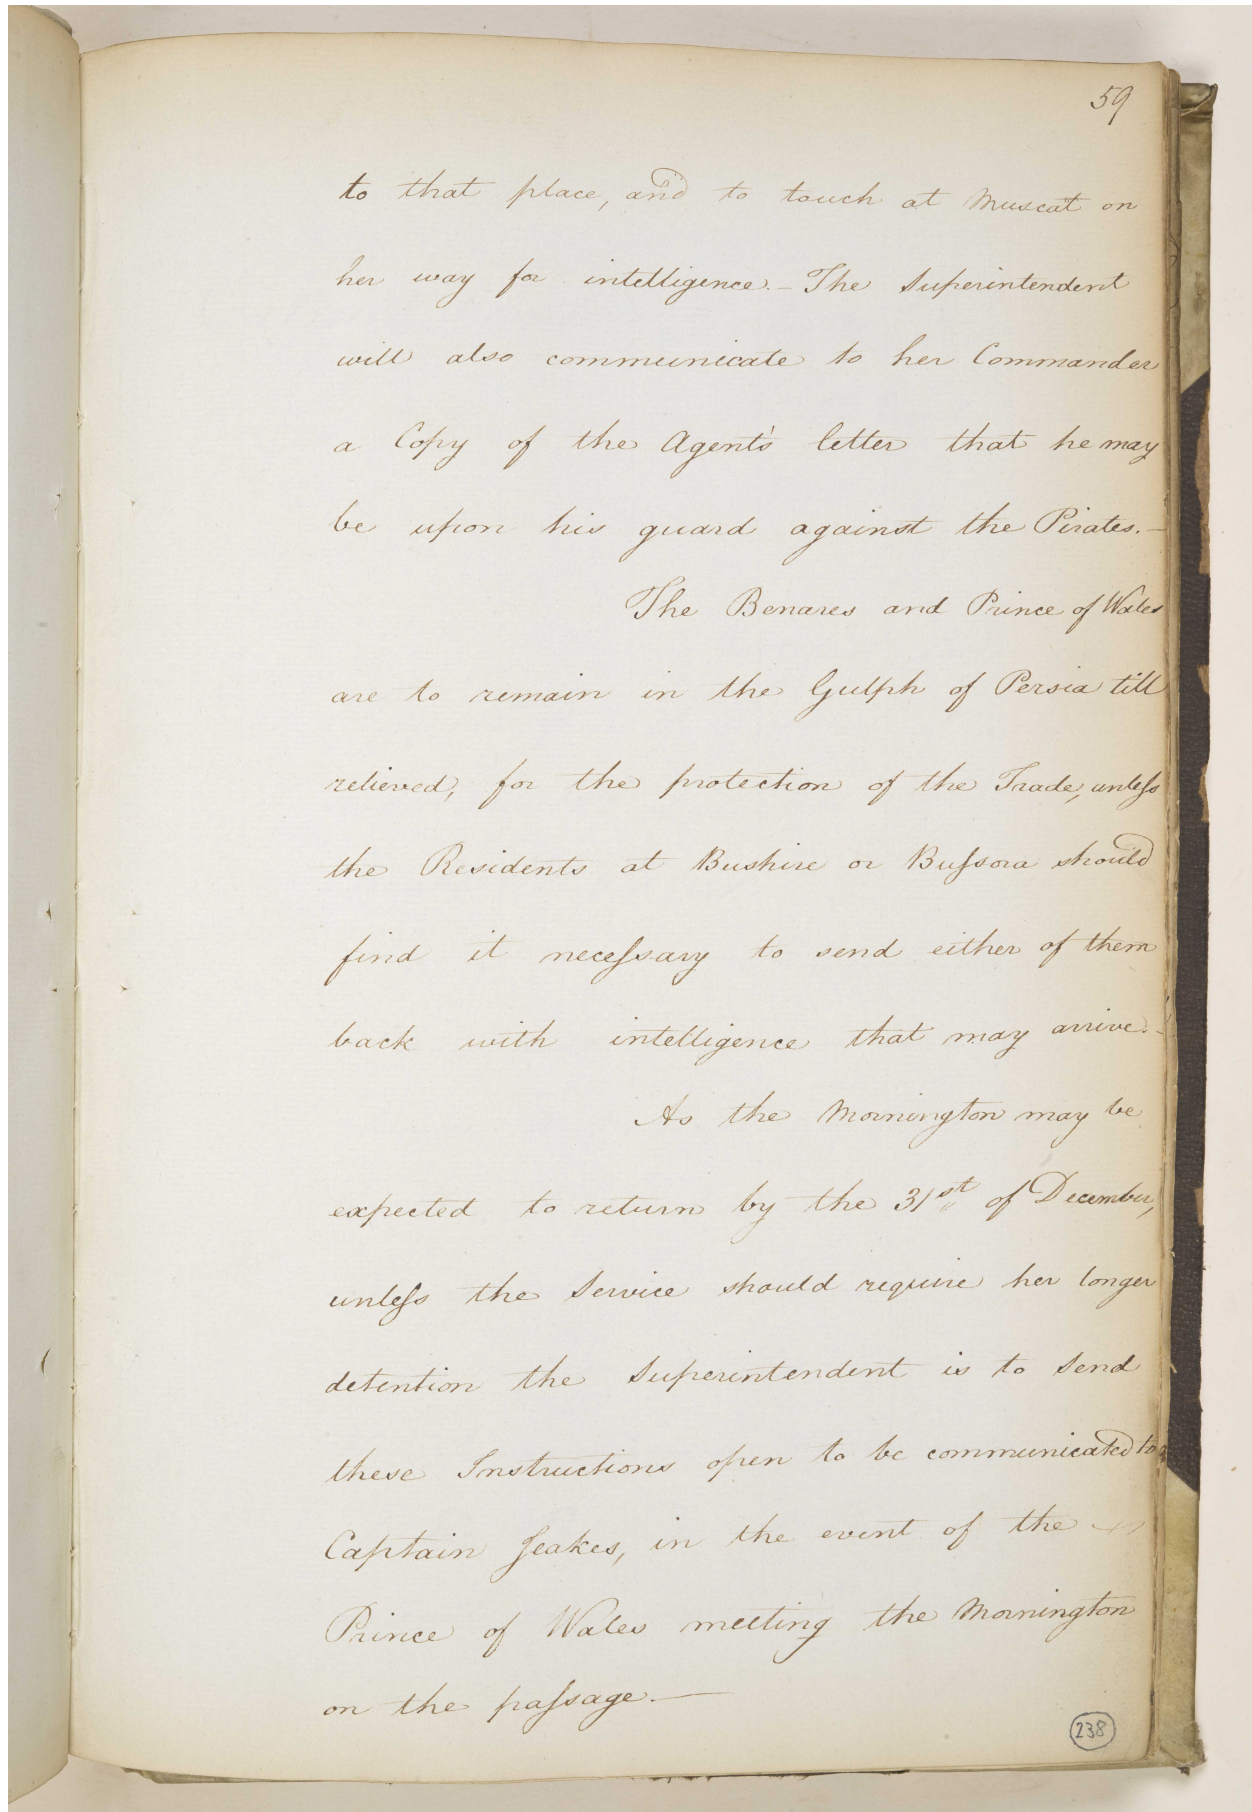 59
to that place, and to touch at Muscat on
her way for intelligence. - The Superintendent
will also communicate to her Commander
a Copy of the Agent's letter that he may
be upon his guard against the Pirates. -
The Benares and Prince of Wales
are to remain in the Gulph of Persia till
relieved, for the protection of the Trade, unleſs
the Residents at Bushire or Buſsora should
find it neceſsary to send either of them
back with intelligence that may arrive. -
As the Mornington may be
expected to return by the 31st of December,
unleſs the Service should require her longer
detention the Superintendent is to Send
these Instructions open to be communicated to
Captain Seakes, in the event of the
Prince of Wales meeting the Mornington
on the paſsage. —
238